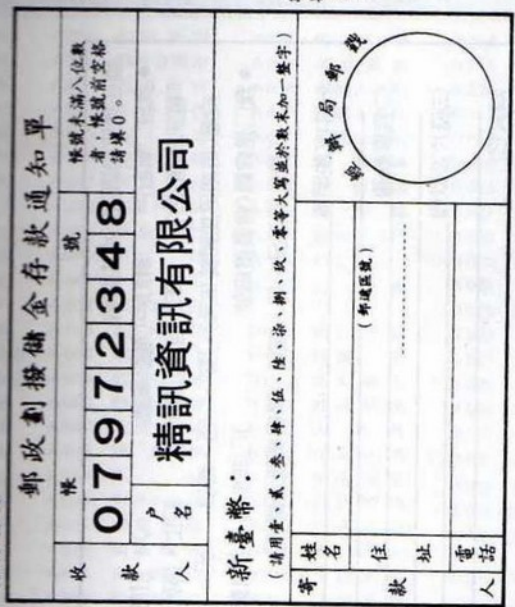 郵政劃撥儲金存款通知單
收款人
帳號
07972348
帳號未滿八位數
者，帳號前空格
請填0。
戶名
精訊資訊有限公司
新臺幣：
（請用壹、貳、叁、肆、伍、陸、柒、捌、玖、零等大寫並於數末加一整字）
寄款人
姓名
住址
（郵遞區號）
電話
郵局